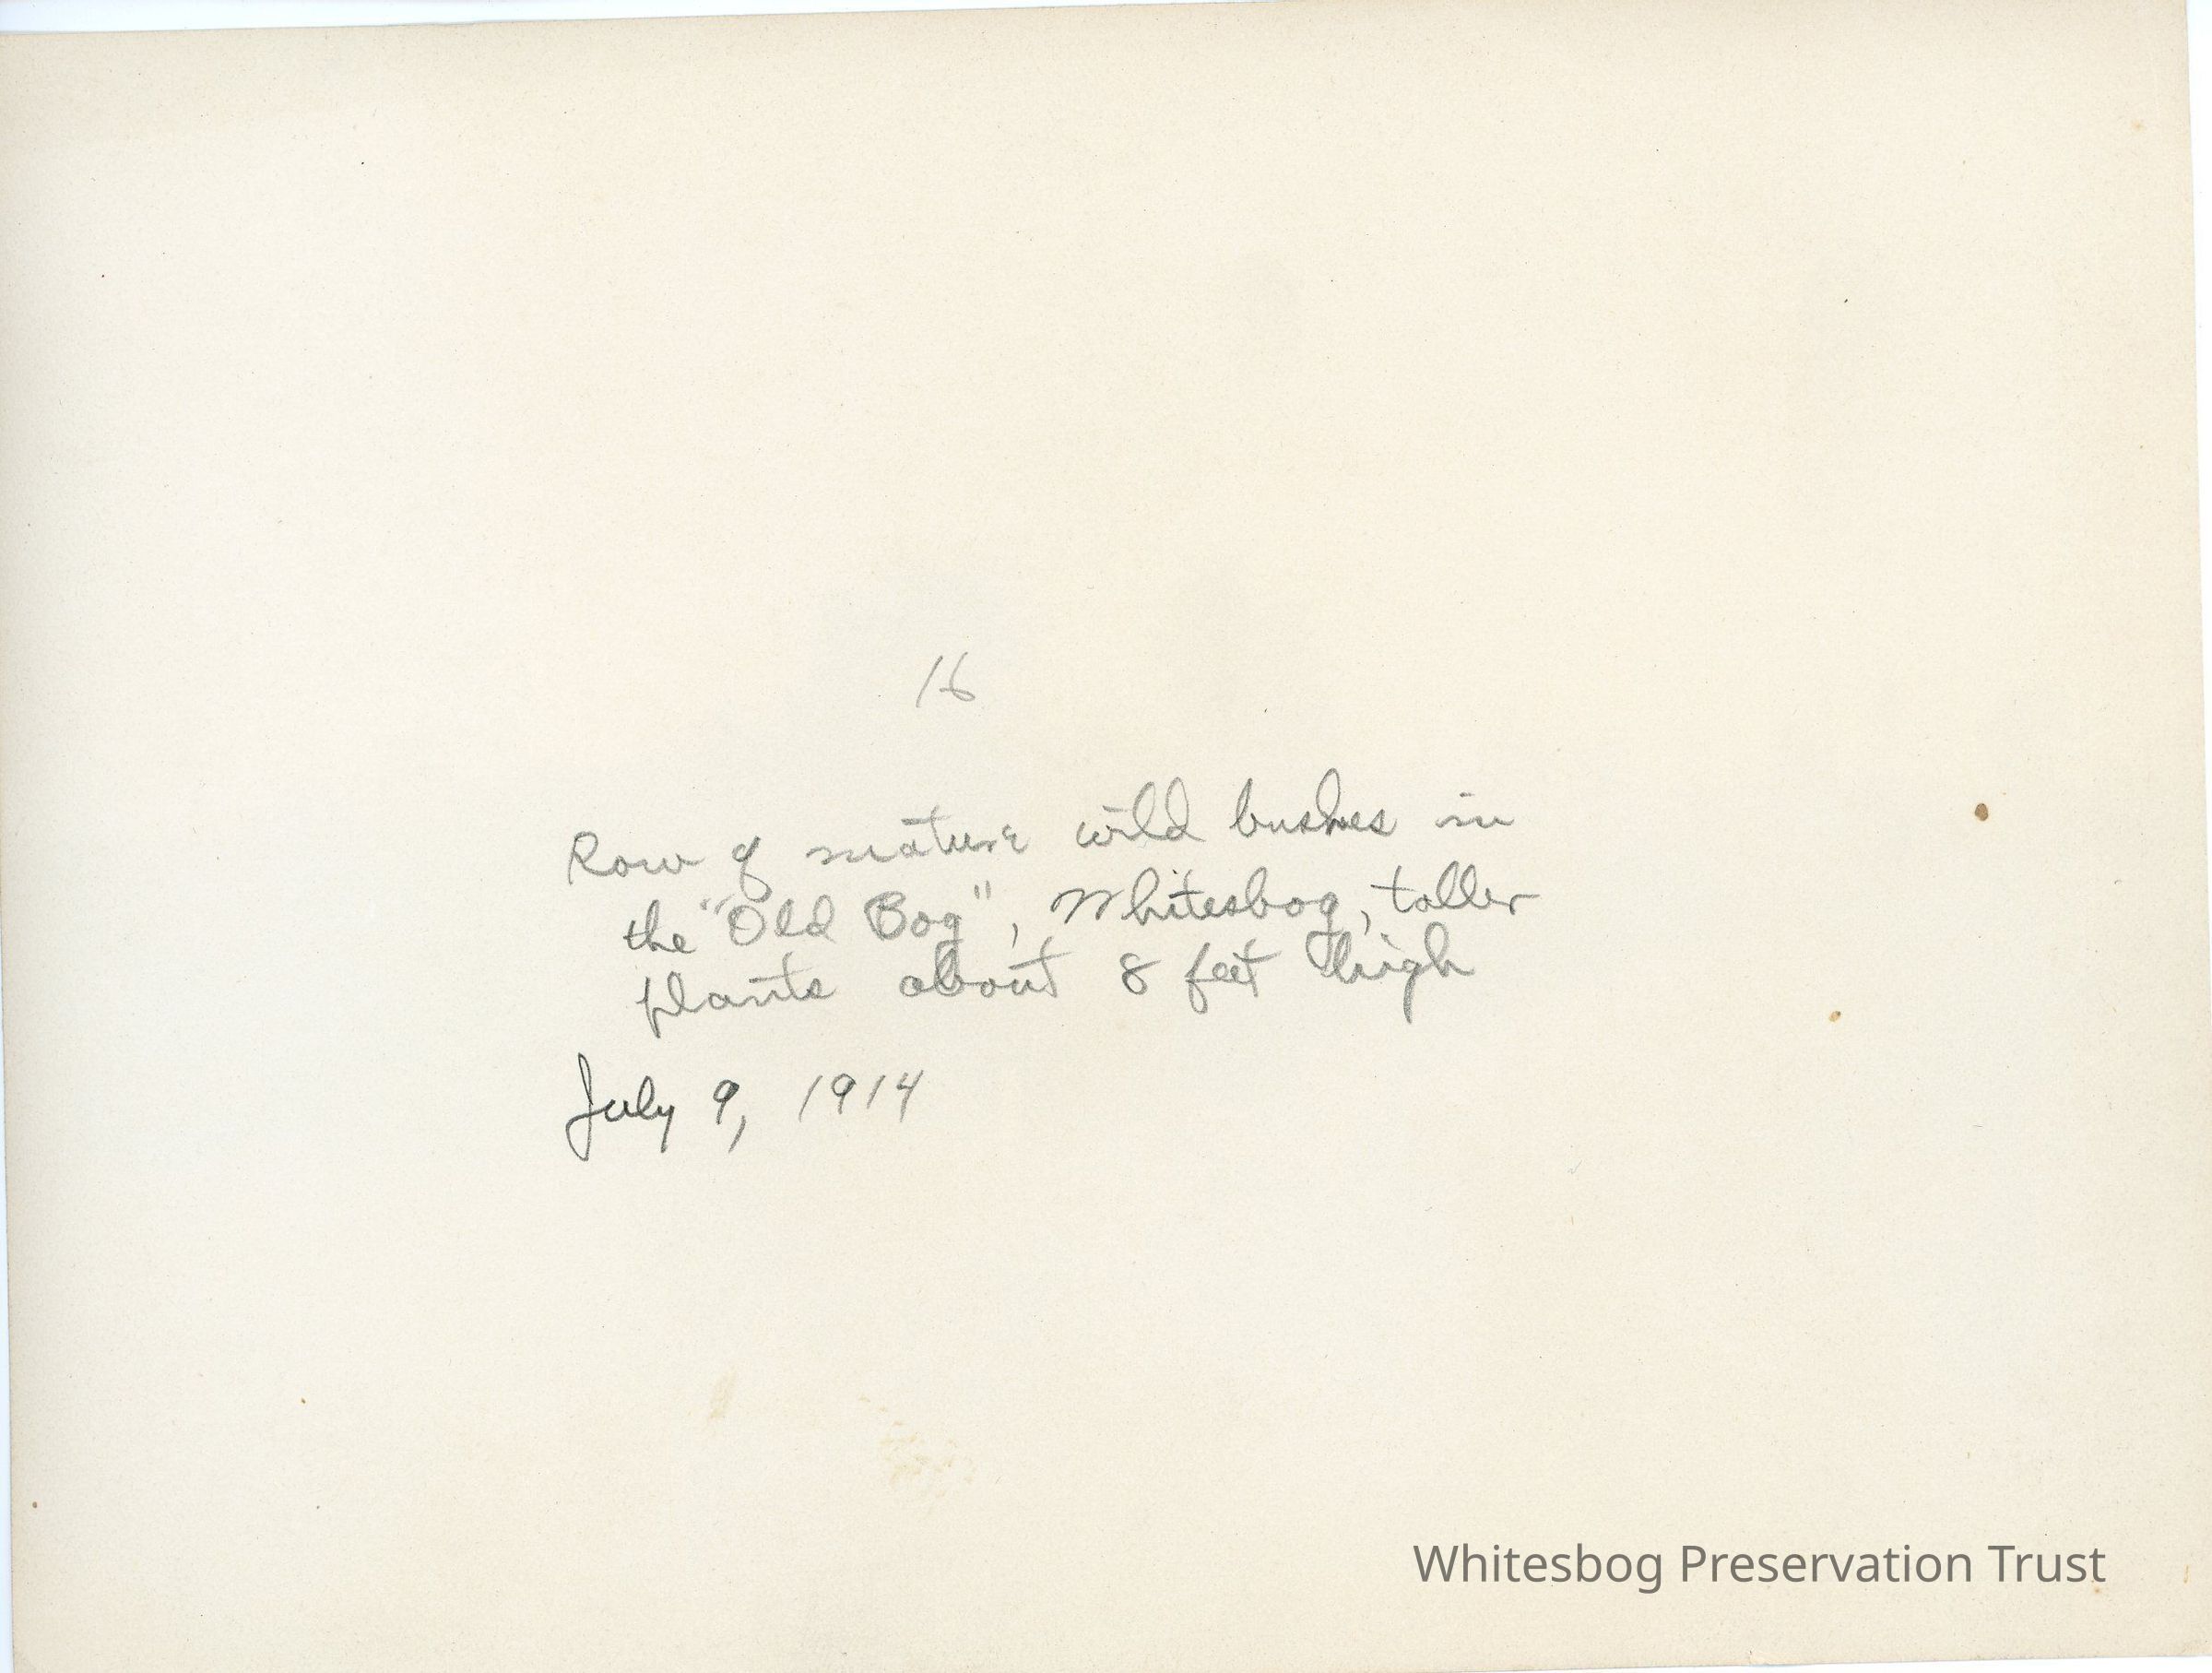 16
Row of mature wild bushes in
the "Old Bog", Whitesbog, taller
plants about 8 feet high
July 9, 1914
Whitesbog Preservation Trust